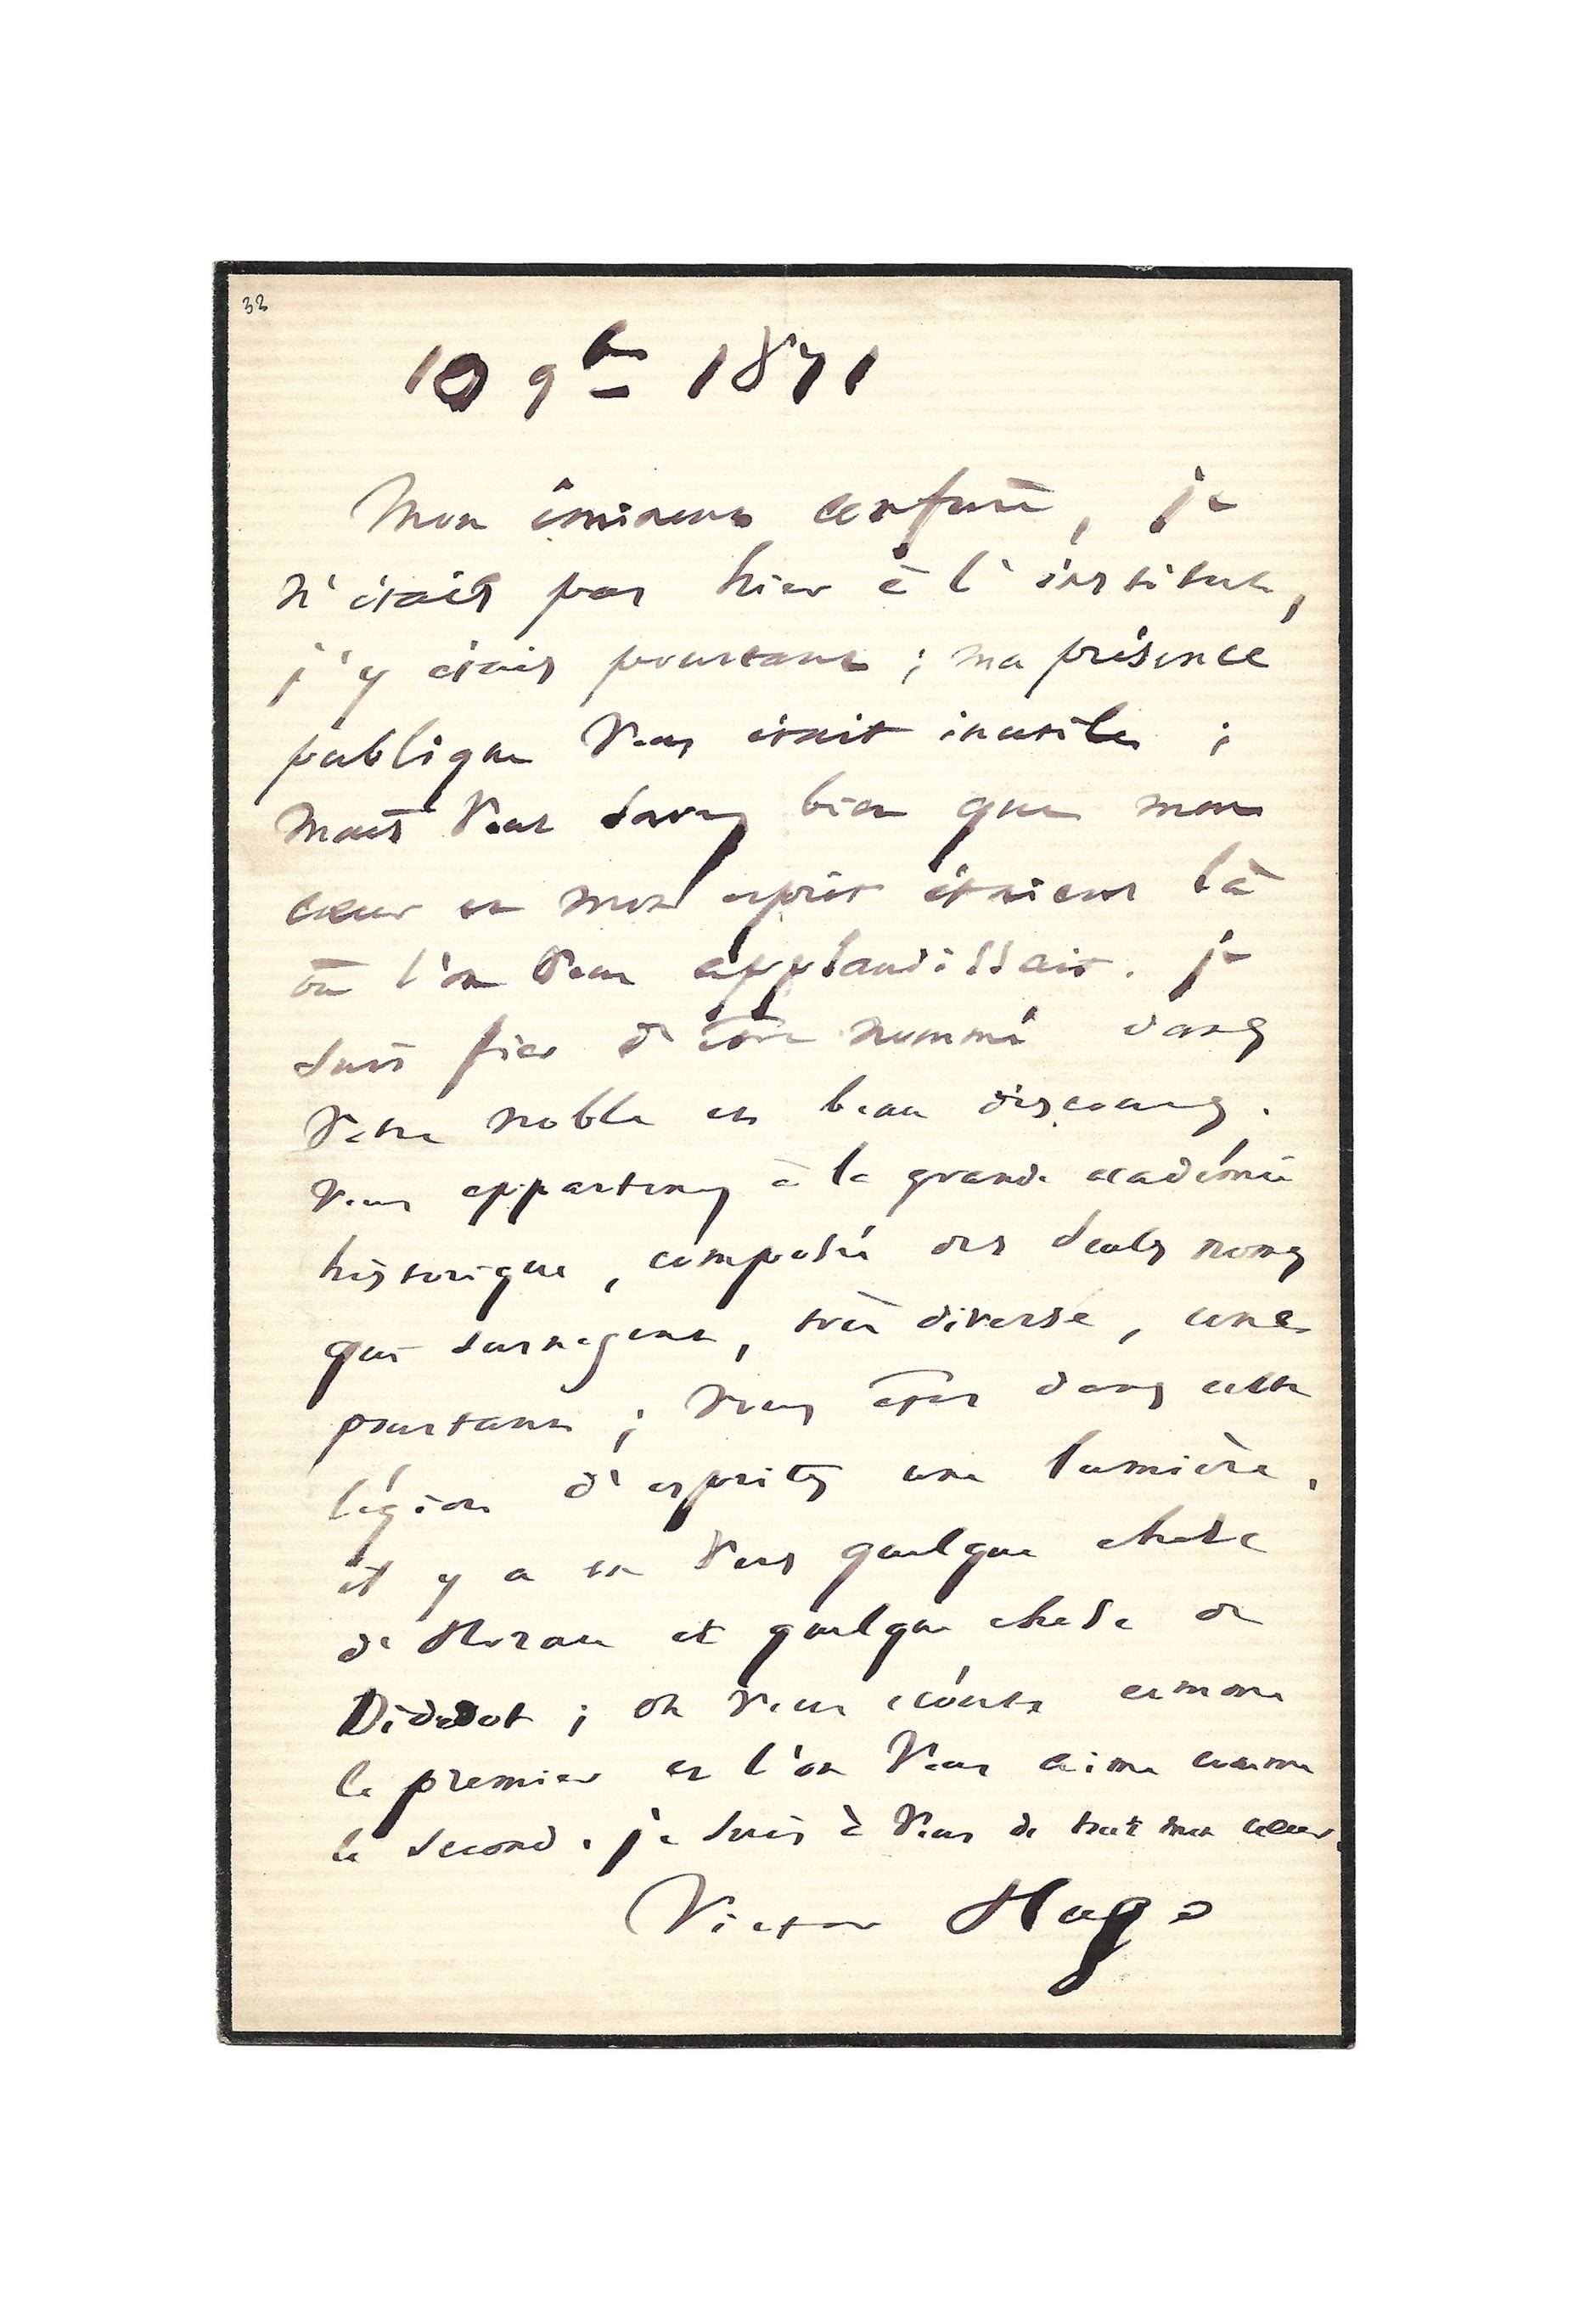 32
10 9bre 1871
Mon éminent confrère, je
n'étais pas hier à l'institut,
j'y étais pourtant ; ma présence
publique vous était inutile ;
mais vous savez bien que mon
cœur et mon esprit étaient là
où l'on vous applaudissait. je
suis fier d'être nommé dans
votre noble et beau discours.
vous appartenez à la grande académie
historique, composée des seuls noms
qui surnagent, très diverse, une
pourtant ; vous êtes dans cette
légion d'esprits une lumière.
il y a en vous quelque chose
de Horace et quelque chose de
Diderot ; on vous écoute comme
le premier et l'on vous aime comme
le second. je suis à vous de tout mon cœur.
Victor Hugo